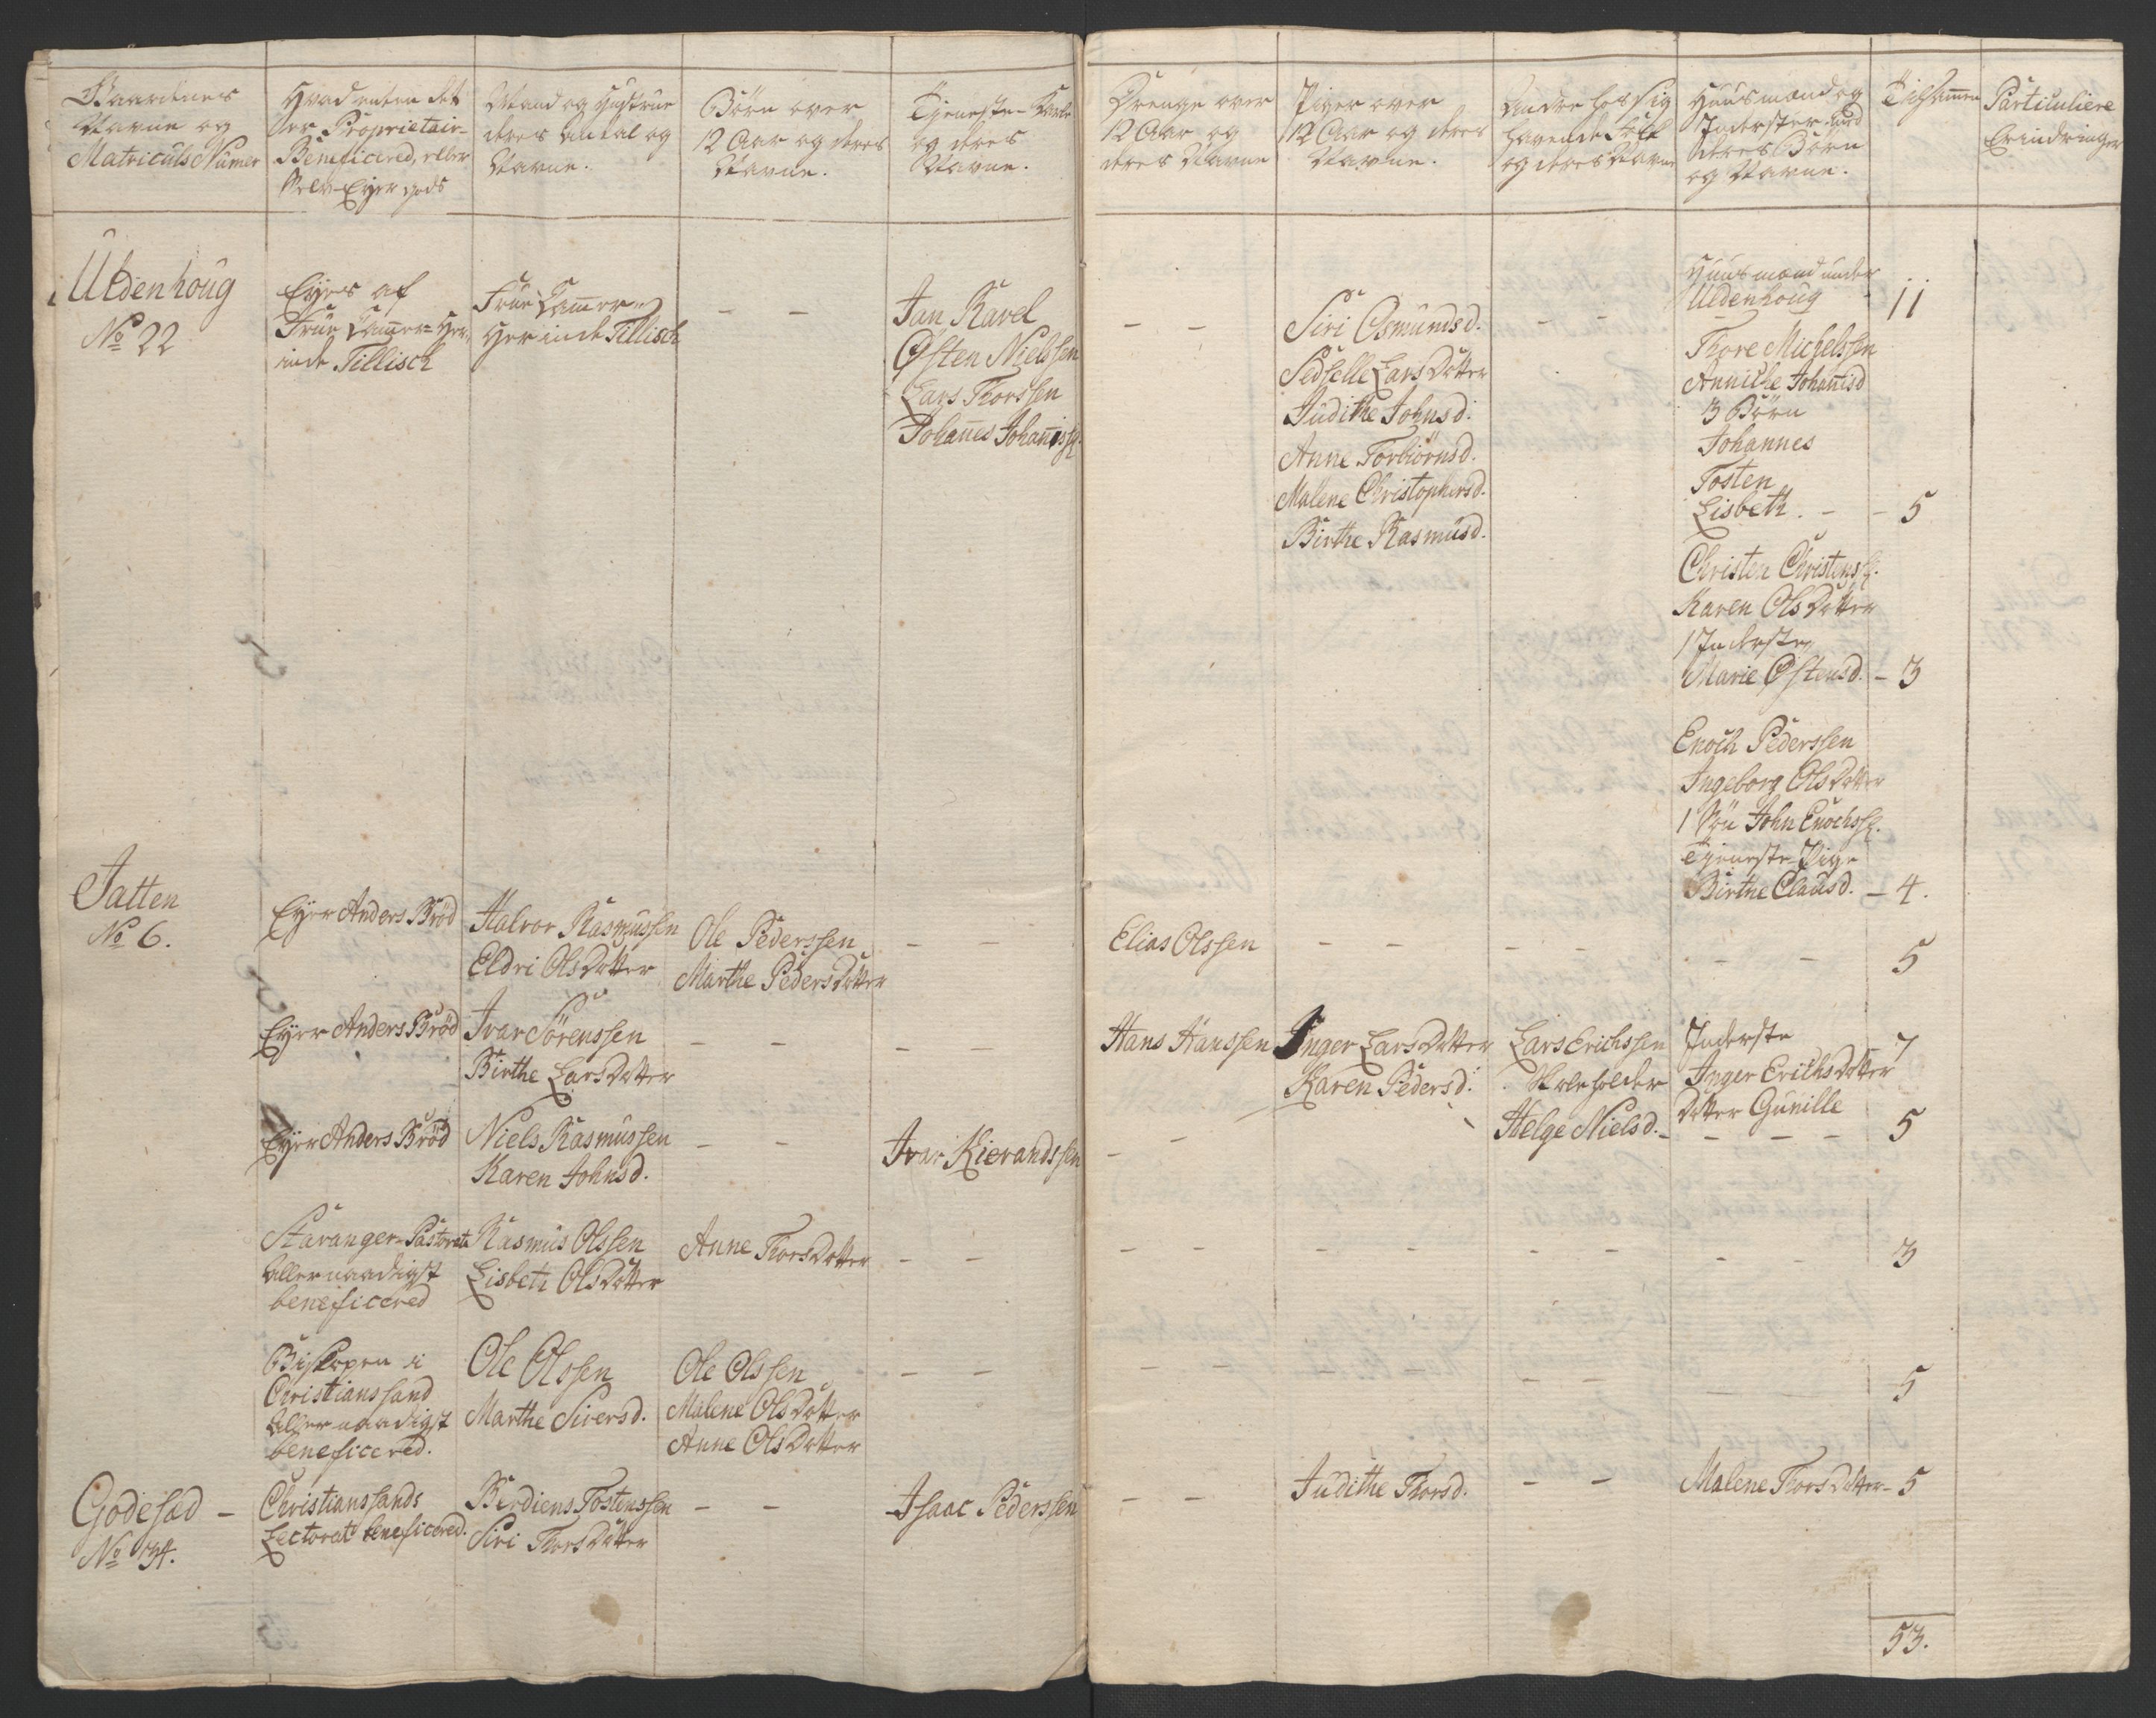 Gaardenes
Navne og
Matriculs Numer
Hvad enten det
er Proprietair-
Beneficered, eller
Selv-Eyer gods
Mand og Hustrue
deres antal og
Navne.
Børn over
12 Aar og deres
Navne.
Tjeneste-Karle
og deres
Navne.
Drenge over
12 Aar og
deres Navne
Piger over
12 Aar og deres
Navne.
Andre hos sig
havende Folk
og deres Navne
Huusmænd og
Inderster med
deres Børn
og Navne.
Tilsammen
Particuliere
Erindringer
Uldenhoug
No 22
Eyes af
Frue Cam̄er-Her-
inde Tillisch
Frue Cam̄er-
Herinde Tillisch
- -
Jan Ravel
Østen Nielssen
Lars Thorssen
Johan̄es Johan̄iss.
- -
Siri Osmundsd.
Sedselle Lars Dotter
Judithe Johnsd.
Anne Torbiørnsd.
Malene Christophersd.
Birthe Rasmusd.
- -
Huusmænd under
Uldenhoug
11
Thore Michelssen
Anniche Johan̄isd
3 Børn
Johannes
Tosten
Lisbeth. - - 5
Christen Christenss.
Karen Ols Dotter
1 Inderste
Marie Østensd. - 3
Enoch Pederssen
Ingeborg Ols Dotter
1 Søn John Enochss.
Tjeneste Pige
Birthe Clausd. - 4.
Jatten
No 6.
Eyer Anders Brød
Halvor Rasmussen
Eldri Ols Dotter
Ole Pederssen
Marthe Peders Dotter
- -
Elias Olssen
- -
- -
- -
5
Eyer Anders Brød
Ivar Sørenssen
Birthe Lars Dotter
- -
- -
Hans Hanssen
Inger Lars Dotter
Karen Pedersd.
Lars Erichssen
Skoleholder
Inderste
Inger Erichs Dotter
Dotter Gunille
7
Eyer Anders Brød
Niels Rasmussen
Karen Johnsd.
- -
Ivar Kierandssen
- -
Helge Nielsd. -
- - -
5
Stavanger-Pastorat
Allernaadigst
beneficered
Rasmus Olssen
Lisbeth Ols Dotter
Anne Thors Dotter
- -
- -
- -
- -
- -
3
Biskopen i
Christianssand
Allernaadigst
beneficered.
Ole Olssen
Marthe Siversd.
Ole Olssen
Malene Ols Dotter
Anne Ols Dotter
- -
- -
- -
- -
5
Godesad -
No 34.
Christianssands
Lectorat beneficered.
Berdiens Tostenssen
Siri Thors Dotter
- -
Isaac Pederssen
- -
Judithe Thorsd.
- -
Malene Thors Dotter - 5
53.